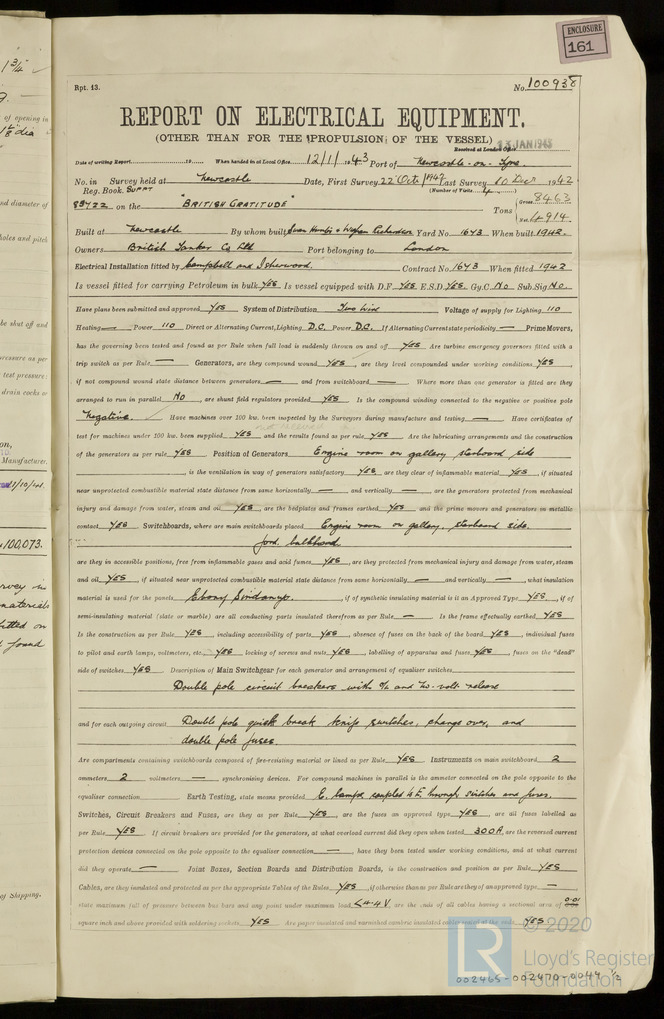 ENCLOSURE
161
Rpt. 13.
No. 100938
REPORT ON ELECTRICAL EQUIPMENT.
(OTHER THAN FOR THE PROPULSION OF THE VESSEL)
Received at London Office 13 JAN 1943
Date of writing Report 19 When handed in at Local Office 12/1/1943 Port of Newcastle-on-Tyne.
No. in Survey held at Newcastle Date, First Survey 22 Oct 1942 Last Survey 10 Decr 1942
Reg. Book. Suppt (Number of Visits )
83722 on the "BRITISH GRATITUDE" Tons Gross 8463 Net 4914.
Built at Newcastle By whom built Swan Hunter & Wigham Richardson Yard No. 1643 When built 1942.
Owners British Tanker Co Ltd Port belonging to London
Electrical Installation fitted by Campbell and Isherwood. Contract No. 1643 When fitted 1942
Is vessel fitted for carrying Petroleum in bulk YES Is vessel equipped with D.F. YES E.S.D. YES Gy.C. No Sub.Sig. No
Have plans been submitted and approved YES System of Distribution Two wire Voltage of supply for Lighting 110
Heating — Power 110 Direct or Alternating Current, Lighting D.C. Power D.C. If Alternating Current state periodicity — Prime Movers,
has the governing been tested and found as per Rule when full load is suddenly thrown on and off YES Are turbine emergency governors fitted with a
trip switch as per Rule — Generators, are they compound wound YES, are they level compounded under working conditions YES,
if not compound wound state distance between generators — and from switchboard — Where more than one generator is fitted are they
arranged to run in parallel No, are shunt field regulators provided YES Is the compound winding connected to the negative or positive pole
Negative. Have machines over 100 kw. been inspected by the Surveyors during manufacture and testing — Have certificates of
test for machines under 100 kw. been supplied YES and the results found as per rule YES Are the lubricating arrangements and the construction
of the generators as per rule YES Position of Generators Engine room on gallery starboard side
, is the ventilation in way of generators satisfactory YES are they clear of inflammable material YES, if situated
near unprotected combustible material state distance from same horizontally — and vertically —, are the generators protected from mechanical
injury and damage from water, steam and oil YES, are the bedplates and frames earthed YES and the prime movers and generators in metallic
contact YES Switchboards, where are main switchboards placed Engine room on gallery, starboard side.
ford. bulkhead
are they in accessible positions, free from inflammable gases and acid fumes YES, are they protected from mechanical injury and damage from water, steam
and oil YES, if situated near unprotected combustible material state distance from same horizontally — and vertically —, what insulation
material is used for the panels Ebony Sindanyo., if of synthetic insulating material is it an Approved Type YES, if of
semi-insulating material (slate or marble) are all conducting parts insulated therefrom as per Rule — Is the frame effectually earthed YES
Is the construction as per Rule YES, including accessibility of parts YES, absence of fuses on the back of the board YES, individual fuses
to pilot and earth lamps, voltmeters, etc. YES locking of screws and nuts YES, labelling of apparatus and fuses YES, fuses on the "dead"
side of switches YES Description of Main Switchgear for each generator and arrangement of equaliser switches
Double pole circuit breakers with O/L and no-volt release
and for each outgoing circuit Double pole quick break knife switches, change over, and
double pole fuses.
Are compartments containing switchboards composed of fire-resisting material or lined as per Rule YES Instruments on main switchboard 2
ammeters 2 voltmeters — synchronising devices. For compound machines in parallel is the ammeter connected on the pole opposite to the
equaliser connection Earth Testing, state means provided E. lamps coupled to E. through switches and fuses.
Switches, Circuit Breakers and Fuses, are they as per Rule YES, are the fuses an approved type YES, are all fuses labelled as
per Rule YES If circuit breakers are provided for the generators, at what overload current did they open when tested 300A, are the reversed current
protection devices connected on the pole opposite to the equaliser connection —, have they been tested under working conditions, and at what current
did they operate — Joint Boxes, Section Boards and Distribution Boards, is the construction and position as per Rule YES
Cables, are they insulated and protected as per the appropriate Tables of the Rules YES, if otherwise than as per Rule are they of an approved type —
state maximum fall of pressure between bus bars and any point under maximum load <4V are the ends of all cables having a sectional area of 0.01
square inch and above provided with soldering sockets YES Are paper insulated and varnished cambric insulated cables YES
© 2020
Lloyd's Register
Foundation
LR
002465-002470-0044 1/2